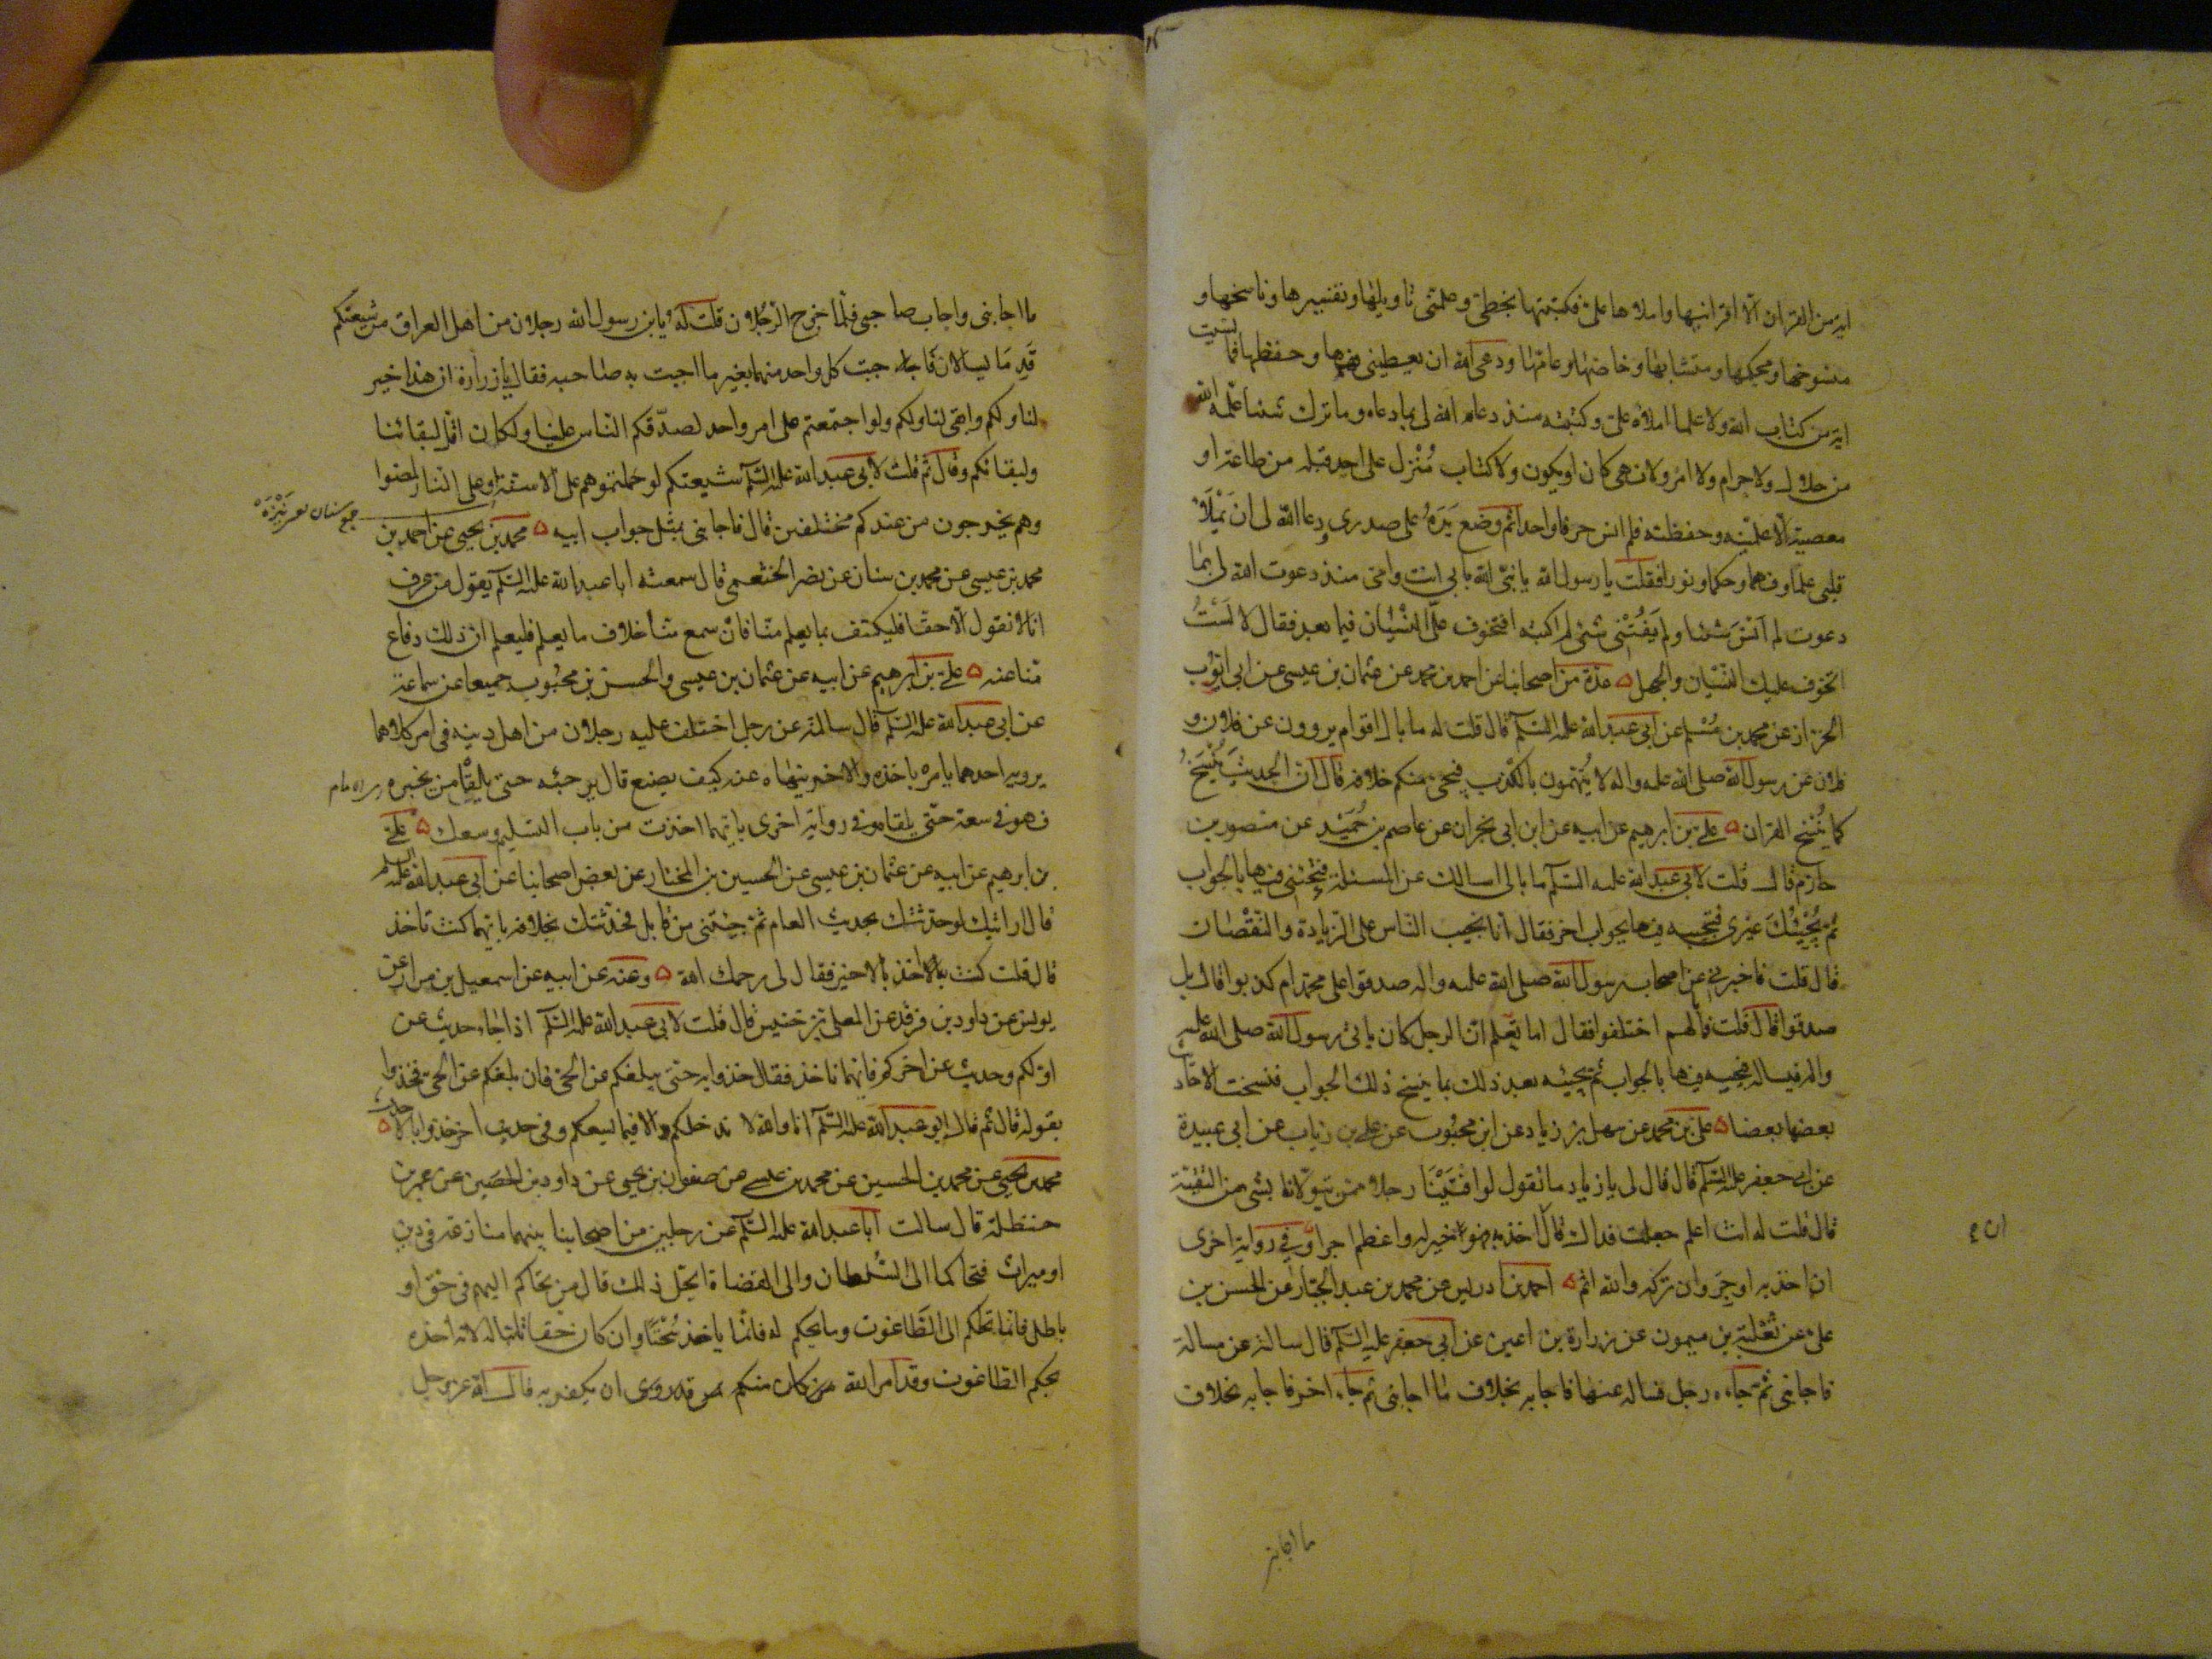 اية من القران الا اقرانيها واملاها على فكتبتها بخطى وعلمنى تاويلها وتفسيرها وناسخها و
منسوخها ومحكمها ومتشابهها وخاصها وعامها ودعى الله ان يعطينى فهمها وحفظها فما نسيت
اية من كتاب الله ولا علما املاه على وكتبته منذ دعاه الله لى بما دعاه وما ترك شيئا علمه الله
من حلال ولا حرام ولا امر ولا نهى كان او يكون ولا كتاب مُنْزل على احد قبله من طاعة او
معصية الا علمنيه وحفظته فلم انس حرفا واحدا ثم وضع يَدَهُ على صدرى ودعا الله لى ان يَمْلَأَ
قلبى علما وفهما وحكما ونورا فقلت يا رسول الله يا نبى الله بابى انت وامى منذ دعوت الله لى بما
دعوت لم اَنْسَ شيئا ولم يَفُتْنى شئ لم اكتبه افتخوف علىّ النسْيَان فيما بعد فقال لا لَسْتُ
اتخوف عليك النسْيان والجهل ۵ عدة من اصحابنا عن احمد بن محمد عن عثمان بن عيسى عن ابى ايوب
الخزاز عن محمد بن مُسْلم عن ابى عبد الله عليه السلم قال قلت له ما بال اقوام يروون عن فلان و
فلان عن رسول الله صلى الله عليه واله لا يُتهمون بالكذب فيجئ منكم خلافه قال ان الحديث يُنْسَخُ
كما يُنْسَخ القران ۵ على بن ابرهيم عن ابيه عن ابن ابى نجران عن عاصم بن حُمَيْد عن منصور بن
حازم قال قلت لابى عبد الله عليه السلم ما بالى اسالك عن المسئلة فتجيبنى فيها بالجواب
ثم يُجيئك غيرى فتجيبه فيها بجواب اخر فقال انا نجيب الناس على الزيادة والنقْصَان
قال قلت فاخبرنى عن اصحاب رسول الله صلى الله عليه واله صدقوا على محمد ام كذبوا قال بل
صدقوا قال قلت فما بالهم اختلفوا فقال اما تعلم ان الرجل كان ياتى رسول الله صلى الله عليه
واله فيساله فيجيبه فيها بالجواب ثم يجيئه بعد ذلك بما ينسخ ذلك الجواب فنسخت الاحاديث
بعضها بعضا ۵ على بن محمد عن سهل بن زياد عن ابن محبُوب عن على بن رياب عن ابى عبيدة
عن ابى جعفر عليه السلم قال قال لى يا زياد ما تقول لو افْتَيْنَا رجلا ممن يتولانا بشئ من التقيّة
قال قلت له انت اعلم جعلت فداك قال ان اخذ به فهو خير له واعظم اجرا وفى رواية اخرى
ان ع
ان اخذ به اوجر وان تركه والله اثم ۵ احمد بن ادريس عن محمد بن عبد الجبار عن الحسن بن
على عن ثعلبة بن ميمون عن زرارة بن اعين عن ابى جعفر عليه السلم قال سالته عن مسالة
فاجابنى ثم جاءه رجل فساله عنها فاجابه بخلاف ما اجابنى ثم جاء اخر فاجابه بخلاف
ما اجابنى
ما اجابنى واجاب صاحبى فلما خرج الرجُلان قلت له يابن رسول الله رجلان من اهل العراق من شيعتكم
قَدِ مَا يسالان فاجبت كل واحد منهما بغير ما اجبت به صاحبه فقال يا زرارة ان هذا خير
لنا ولكم وابقى لنا ولكم ولو اجتمعتم على امر واحد لصدّقكم الناس علينا ولكان اقل لبقائنا
ولبقائكم وقال ثم قلت لابى عبد الله عليه السلم شيعتكم لو حملتموهم على الاسنة او على النار لمضوا
جمع سنان
وهم يخرجون من عندكم مختلفين قال فاجابنى بمثل جواب ابيه ۵ محمد بن يحيى عن احمد بن
محمد بن عيسى عن محمد بن سنان عن نضر الخثعمى قال سمعت ابا عبد الله عليه السلم يقول من عرف
انا لا نقول الا حقا فليكتف بما يعلم منا فان سمع منا خلاف ما يعلم فليعلم ان ذلك دفاع
منا عنه ۵ على بن ابرهيم عن ابيه عن عثمان بن عيسى والحسن بن محبُوب جميعا عن سماعة
عن ابى عبد الله عليه السلم قال سالته عن رجل اختلف عليه رجلان من اهل دينه فى امر كلاهما
يرويه احدهما يامره باخذه والاخر ينهاه عنه كيف يصنع قال يرجئه حتى يلقا من يخبره
فهو فى سعة حتّى يلقاه وفى رواية اخرى بايهما اخذت من باب التسليم وسعك ۵ على
بن ابرهيم عن ابيه عن عثمان بن عيسى عن الحسين بن المختار عن بعض اصحابنا عن ابى عبد الله عليه السلم
قال ارايتك لو حدثتك بحديث العام ثم جئتنى من قابل فحدثتك بخلافه بايهما كنت تاخذ
قال قلت كنت اخذ بالاخير فقال لى رحمك الله ۵ وعنه عن ابيه عن اسمعيل بن مرار عن
يونس عن داود بن فرقد عن المعلى بن خنيس قال قلت لابى عبد الله عليه السلم اذا جاء حديث عن
اولكم وحديث عن اخركم فايهما ناخذ فقال خذوا به حتى يبلغكم عن الحى فان بلغكم عن الحى فخذوا
بقوله قال ثم قال ابو عبد الله عليه السلم انا والله لا ندخلكم الا فيما يسعكم وفى حديث اخر خذوا بالاحدث ۵
محمد بن يحيى عن محمد بن الحسين عن محمد بن عيسى عن صفوان بن يحيى عن داود بن الحصَين عن عمر بن
حنظلة قال سالت ابا عبد الله عليه السلم عن رجلين من اصحابنا بينهما منازعة فى دين
او ميراث فتحاكما الى السُلطان والى القضاة ايحل ذلك قال من تحاكم اليهم فى حق او
باطل فانما تحاكم الى الطاغوت وما يحكم له فانما ياخذ سُحْتًا وان كان حقا ثابتا له لانه اخذه
بحكم الطاغوت وقد امر الله ان يكفر به قال الله عز وجل